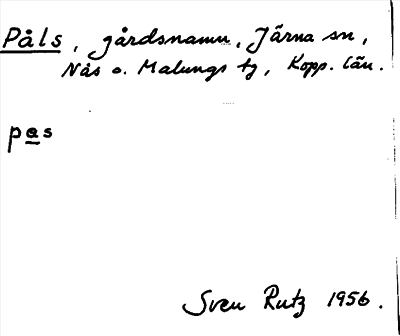 Påls, gårdsnamn, Järna sn,
Nås o. Malungs tg, Kopp. län.
pas
Sven Rutz 1956.